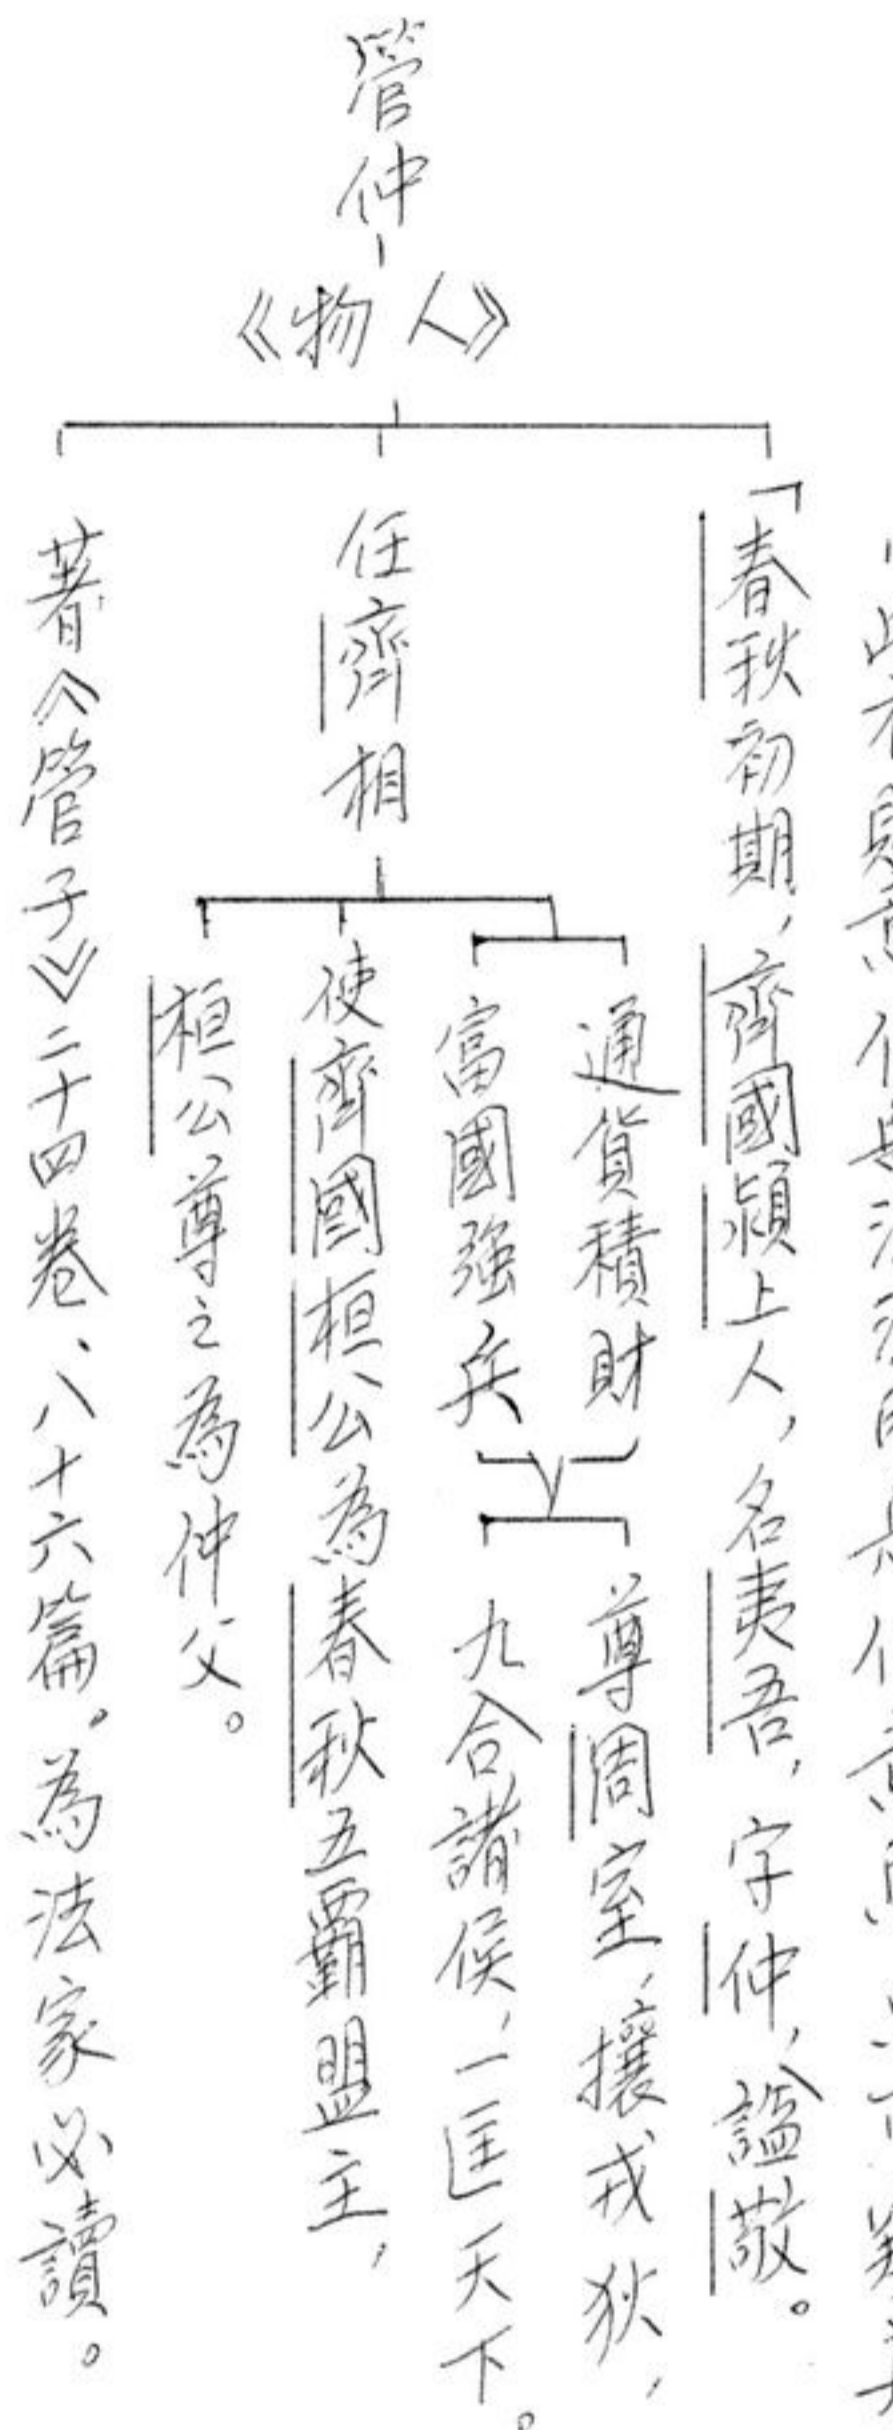 管仲
《人物》
「春秋初期，齊國潁上人，名夷吾，字仲，諡敬。
任齊相
通貨積財
富國強兵
尊周室，攘戎狄，
九合諸侯，一匡天下。
使齊國桓公為春秋五霸盟主，
桓公尊之為仲父。
著《管子》二十四卷、八十六篇。為法家必讀。